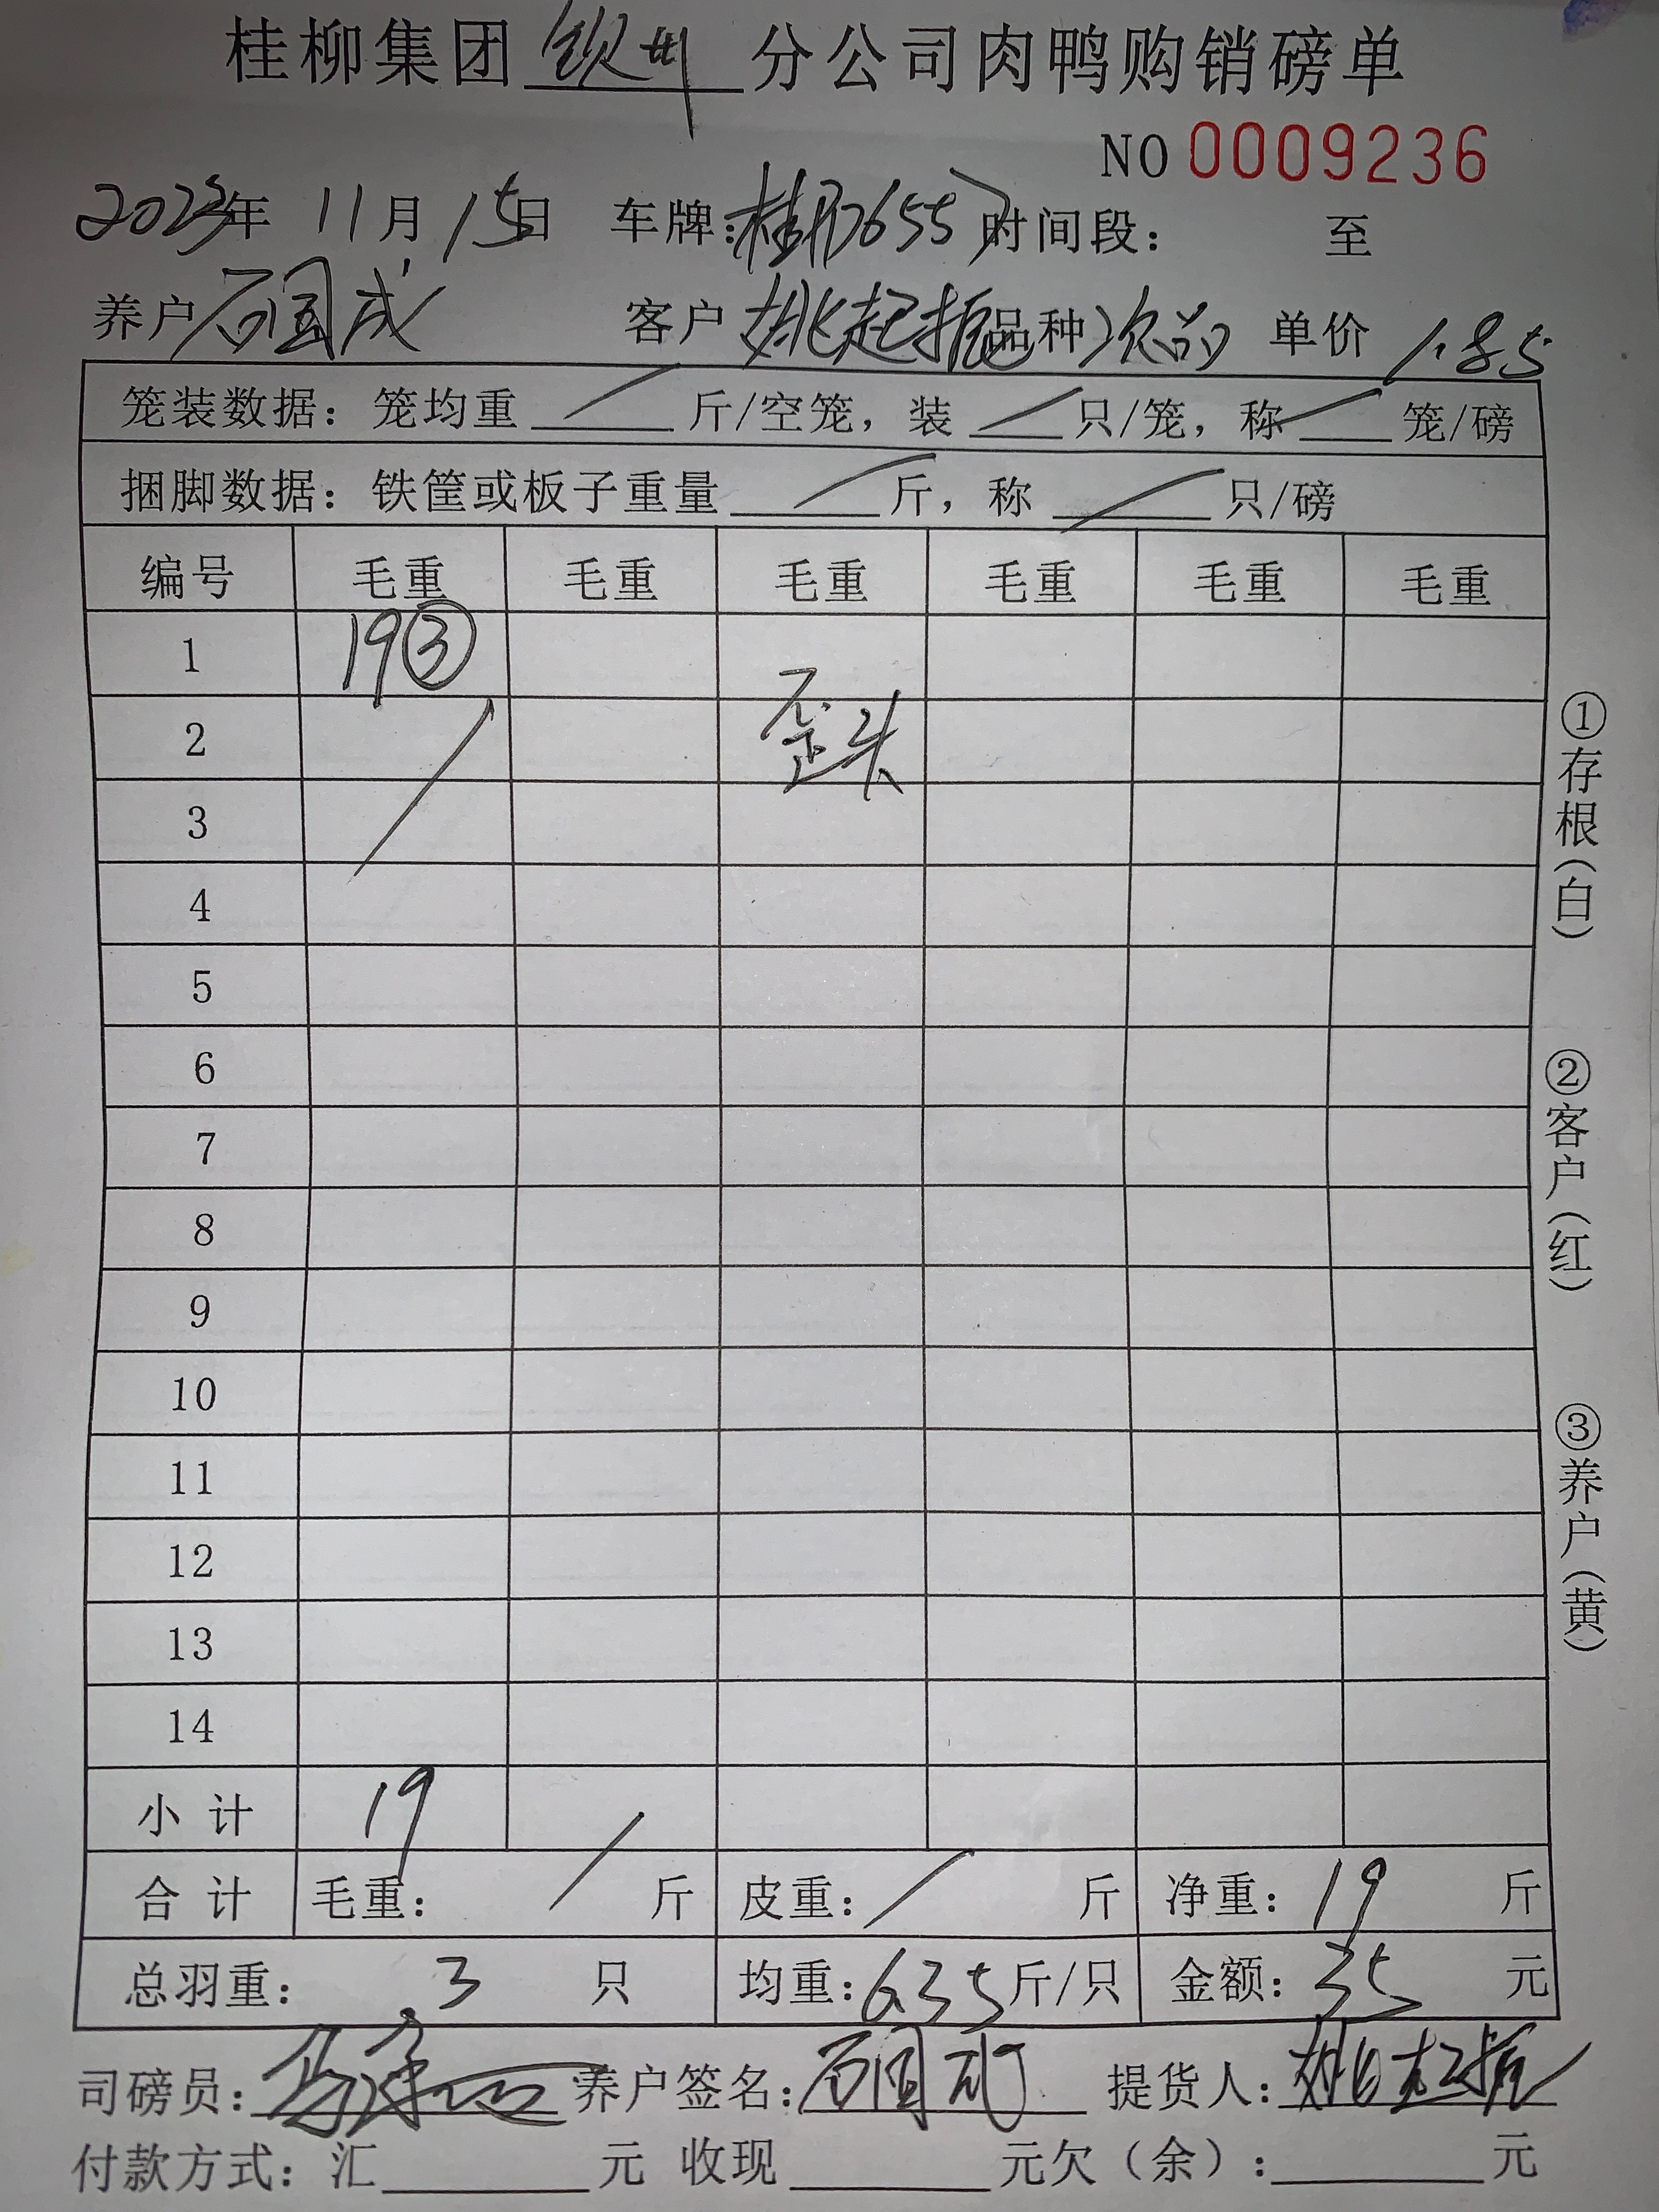 桂柳集团钦州分公司肉鸭购销磅单
NO 0009236
2023年 11月 15日 车牌:桂 D7655 时间段: 至
养户 石国成 客户 姚起振 品种 次品 单价 1.85
笼装数据: 笼均重 / 斤/空笼, 装 / 只/笼, 称 / 笼/磅
捆脚数据: 铁筐或板子重量 / 斤, 称 / 只/磅
编号 毛重 毛重 毛重 毛重 毛重 毛重
1 19③
2 歪头
3
4
5
6
7
8
9
10
11
12
13
14
小计 19
合计 毛重: / 斤 皮重: / 斤 净重: 19 斤
总羽重: 3 只 均重: 6.35 斤/只 金额: 35 元
司磅员: 养户签名: 石国成 提货人: 姚起振
付款方式: 汇 元 收现 元欠(余): 元
①存根(白)
②客户(红)
③养户(黄)